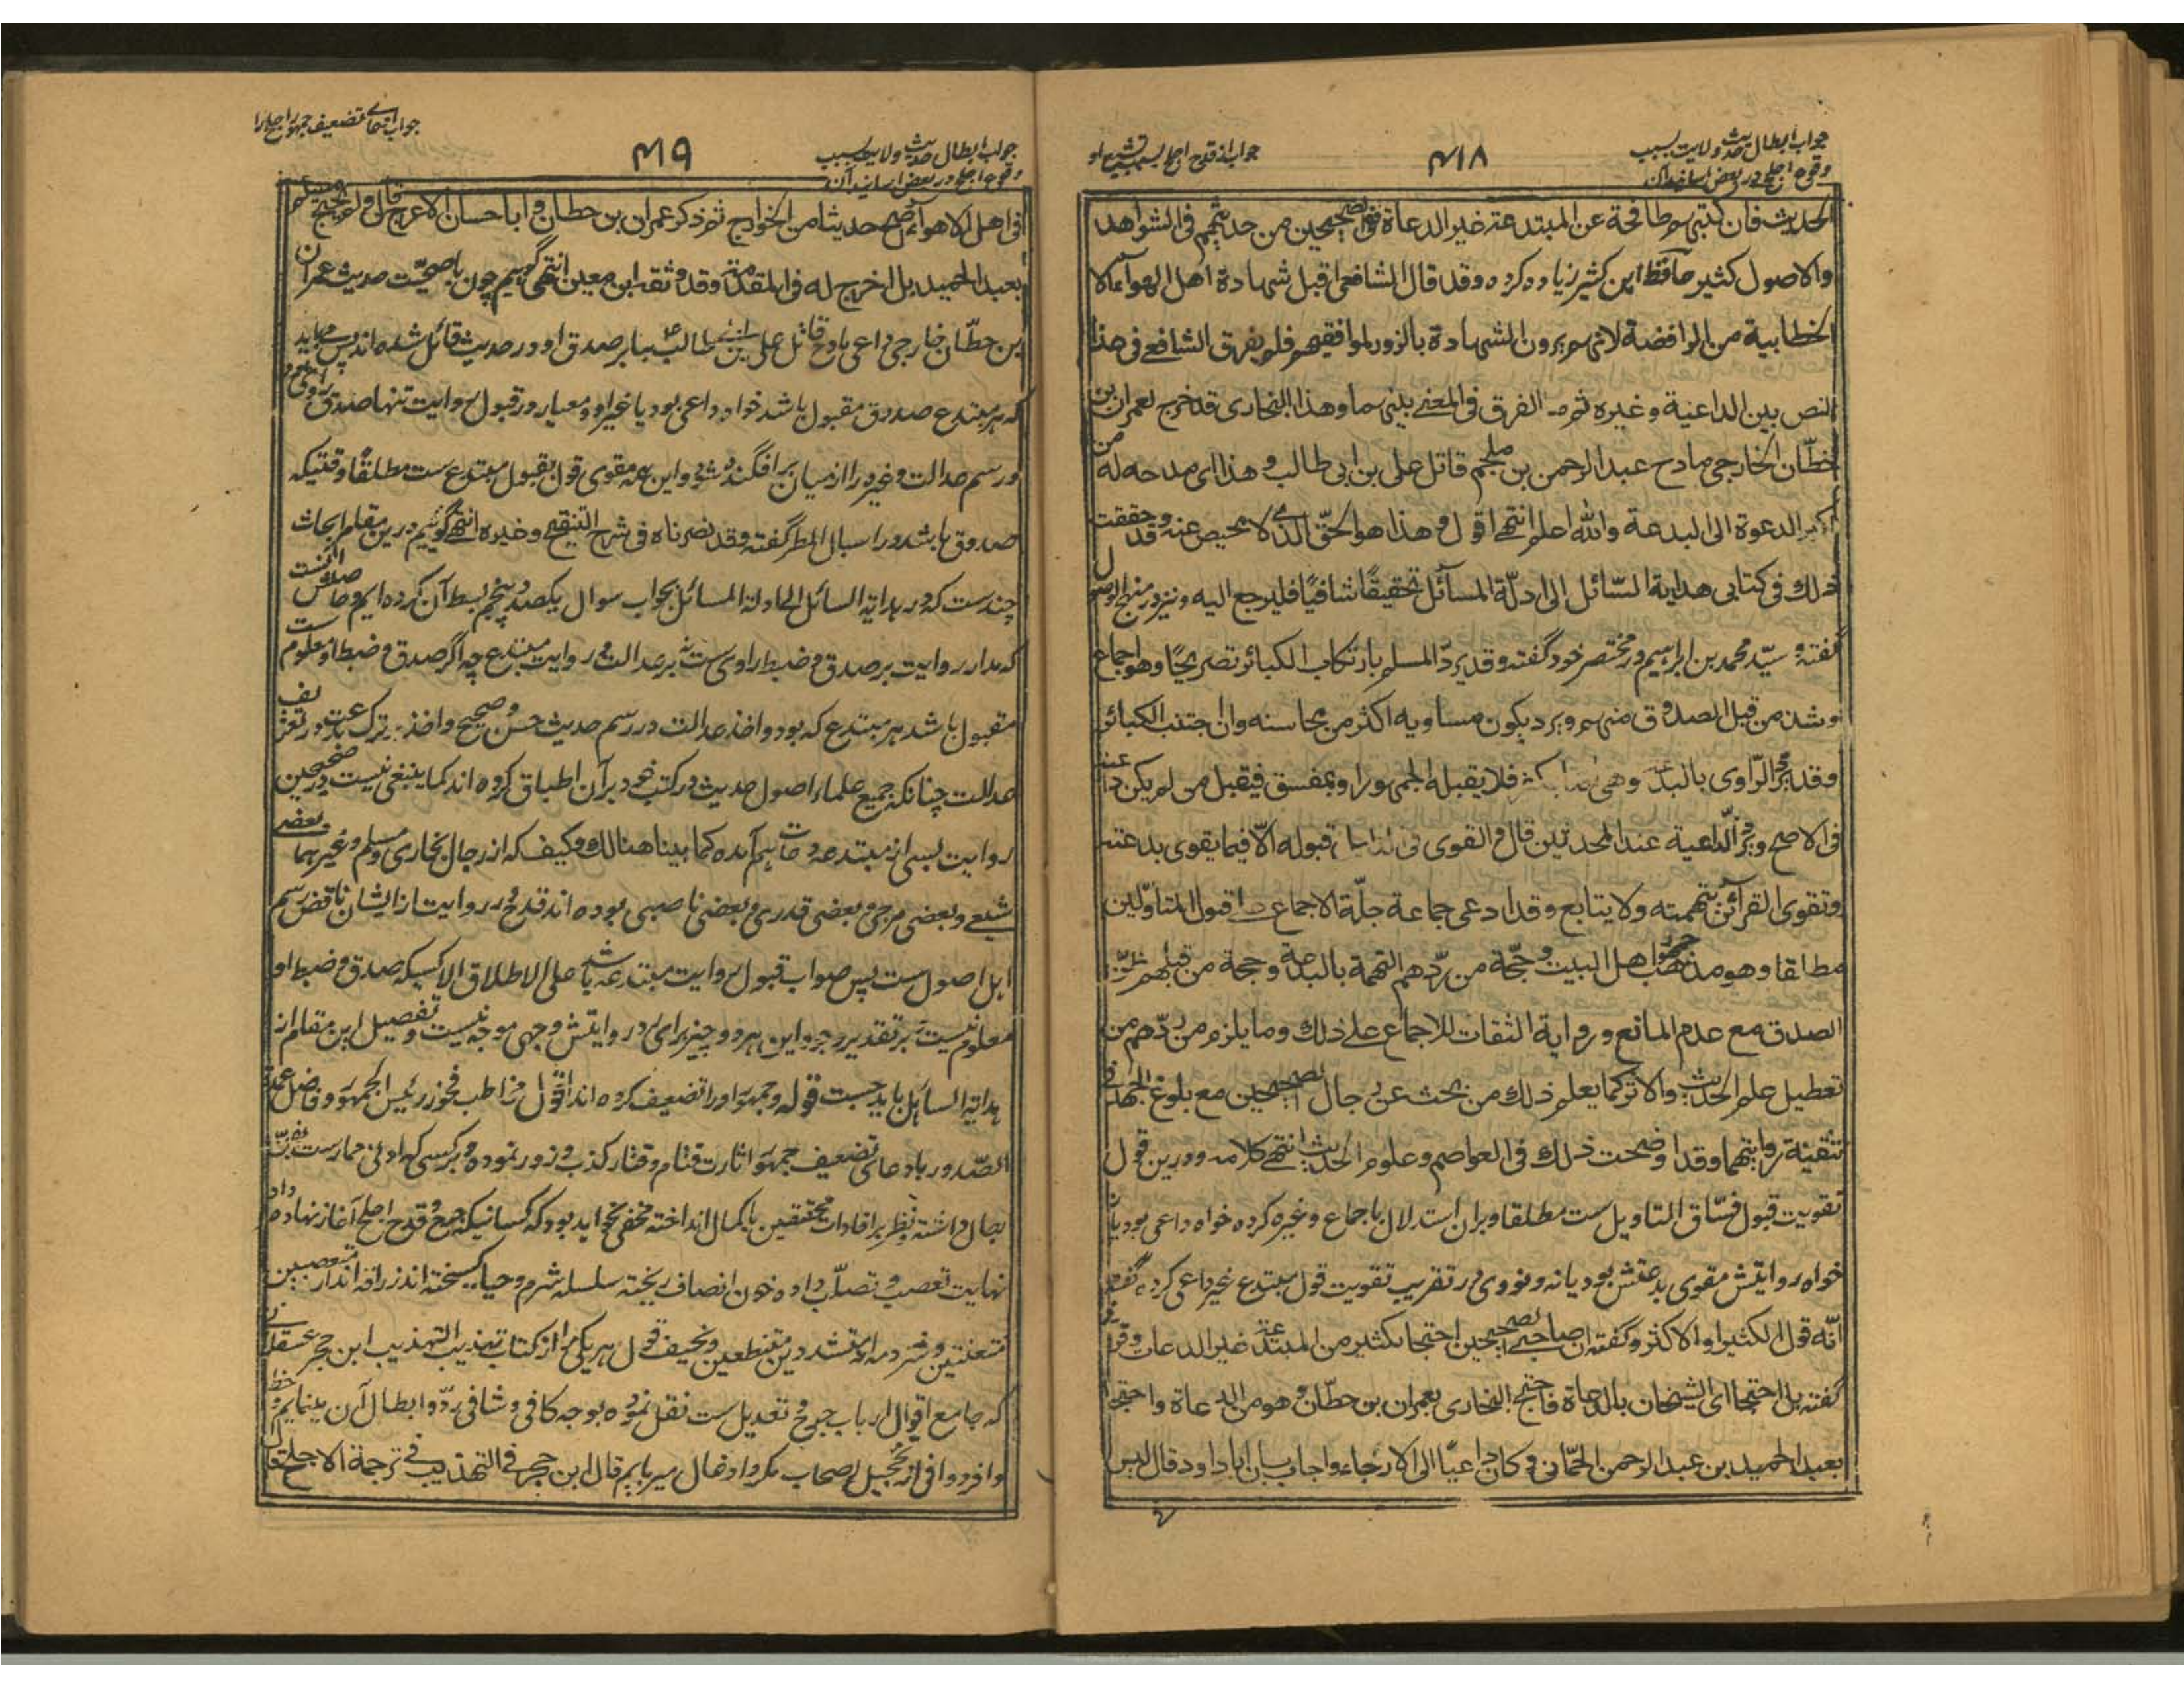 جواب ابطال حدیث ولایت بسبب
وقوع اجلح در بعض اسانید آن
۴۱۸
جواب از قدح اجلح بسبب تشیع او
الحدیث فان کتبهم طافحة عن المبتدعة غیر الدعاة ففی الصحیحین من حدیثهم فی الشواهد
والاصول کثیر حافظ ابن کثیر زیاده کرده وقد قال الشافعی اقبل شهادة اهل الهوآء الا
الخطابیة من الرافضة لانهم یرون الشهادة بالزور لموافقیهم فلم یفرق الشافعی فی هذا
النص بین الداعیة وغیره ثم ما الفرق فی المعنی بینهما وهذا البخاری قد خرج لعمران بن
حطّان الخارجی مادح عبد الرحمن بن ملجم قاتل علی بن ابی طالب وهذا ای مدحه له من
اکبر الدعوة الی البدعة والله اعلم انتهی اقول وهذا هو الحقّ الذی لا محیص عنه وقد حققت
ذلك فی کتابی هدایة السّائل الی ادلّة المسآئل تحقیقًا شافیًا فلیرجع الیه ونیز در منهج الوصول
گفته وسیّد محمد بن ابراهیم در مختصر خود گفته وقد یردّ المسلم بارتکاب الکبائر تصریحًا وهو اجماع
وشذ من قبل الصدوق منهم ویرد بکون مساویه اکثر من محاسنه وان اجتنب الکبائر
وقد یجرح الرّاوی بالبدعة وهی فلا یقبله الجمهور او بمفسق فیقبل من لم یکن داعیة
فی الاصح ویجرح الدّاعیة عند المحدثین قال والقوی فی قبوله الّا فیما یقوی بدعته
وتقوی القرآئن بتهمته ولا یتابع وقد ادعی جماعة جلّة الاجماع علی قبول المتأوّلین
مطلقا وهو مذهب جمهور اهل البیت وحجّة من ردّهم التهمة بالبدعة وحجة من قبلهم ظنّ
الصدق مع عدم المانع وروایة الثقات للاجماع علی ذلك وما یلزم من ردّهم من
تعطیل علم الحدیث والاثر کما یعلم ذلك من بحث عن رجال الصحیحین مع بلوغ الجهد فی
تنقیة رواتهما وقد اوضحت ذلك فی العواصم وعلوم الحدیث انتهی کلامه ودرین قول
تقویت قبول فسّاق التاویل ست مطلقا وبران استدلال باجماع وغیره کرده خواه داعی بود یا نه
خواه روایتش مقوی بدعتش بود یا نه ونووی در تقریب تقویت قول مبتدع غیر داعی کرده گفته
انّه قول الکثیر او الاکثر وگفته ان صاحبی الصحیحین احتجا بکثیر من المبتدعة غیر الدعات وعراقی
گفته بل احتجا ای الشیخان بالدعاة فاحتج البخاری بعمران بن حطّان وهو من الدعاة واحتجا
بعبد الحمید بن عبد الرحمن الحمّانی وکان داعیًا الی الارجاء واجاب بان ابا داود قال لیس
جواب ابطال حدیث ولایت بسبب
وقوع اجلح در بعض اسانید آن
۴۱۹
جواب ادعای تضعیف جمهور اجلح را
فی اهل الاهوآء اصح حدیثا من الخوارج ثم ذکر عمران بن حطان وابا حسان الاعرج قال ولم یحتج مسلم
بعبد الحمید بل اخرج له فی المقدمة وقد وثقه ابن معین انتهی گوئیم چون با صحّت حدیث عمران
بن حطّان خارجی داعی مادح قاتل علی بن ابی طالب بنا بر صدق او در حدیث قائل شده اند پس می باید
که هر مبتدع صدوق مقبول باشد خواه داعی بود یا غیر او ومعیار در قبول روایت تنها صدق راوی بود
ورسم عدالت وغیره را از میان بر افگنده شود واین همه مقوی قول بقبول مبتدع ست مطلقًا وقتیکه
صدوق باشد ودر اسبال المطر گفته وقد نصرناه فی شرح التنقیح وغیره انتهی گوئیم درین مقام ابحاث
چندست که در هدایة السائل الی ادلة المسائل بجواب سوال یکصد وپنجم بسط آن کرده ایم وحاصلش آنست
که مدار روایت بر صدق وضبط راوی ست نه بر عدالت در روایت مبتدع چه اگر صدق وضبط او معلوم ست
مقبول باشد هر مبتدع که بود واخذ عدالت در رسم حدیث حسن وصحیح واخذ ترک بدعت در تعریف
عدالت چنانکه جمیع علماء اصول حدیث در کتب خود برآن اطباق کرده اند کما ینبغی نیست در صحیحین
روایت بسی از مبتدعه دعات بهم آمده کما بینا هنالك وکیف که از رجال بخاری ومسلم وغیرهما بعضی
شیعی وبعضی مرجی وبعضی قدری وبعضی ناصبی بوده اند قدح در روایت از ایشان ناقض رسم
اهل اصول ست پس صواب قبول روایت مبتدعه باشد علی الاطلاق الا کسیکه صدق وضبط او
معلوم نیست بر تقدیر وجود این هر دو چیز برای رد روایتش وجهی موجه نیست وتفصیل این مقام از
هدایة السائل باید جست قوله وجمهور او را تضعیف کرده اند اقول مخاطب فخور رئیس الجمهور وفاضل عمدة
الصّدور بادعای تضعیف جمهور اثارت قتام وقتار کذب وزور نموده وبر کسی که ادنی ممارست بفنّ
رجال داشته ونظر بر افادات محققین با کمال انداخته مخفی نخواهد بود که کسانیکه جرح وقدح اجلح آغاز نهاده داد
نهایت تعصب وتصلّب داده خون انصاف ریخته سلسله شرم وحیا گسیخته اند زرافه اند از متعصبین
متعنتین وشرذمه اند از متشددین متنطعین وتخیف قول هر یکی را از کتاب تهذیب التهذیب ابن حجر عسقلانی
که جامع اقوال ارباب جرح وتعدیل ست نقل نموده بوجه کافی وشافی ردّ وابطال آن مینمایم وحظ
وافر ووافی از تخجیل اصحاب مکر وادغال میربایم قال ابن حجر فی التهذیب فی ترجمة الاجلح قال